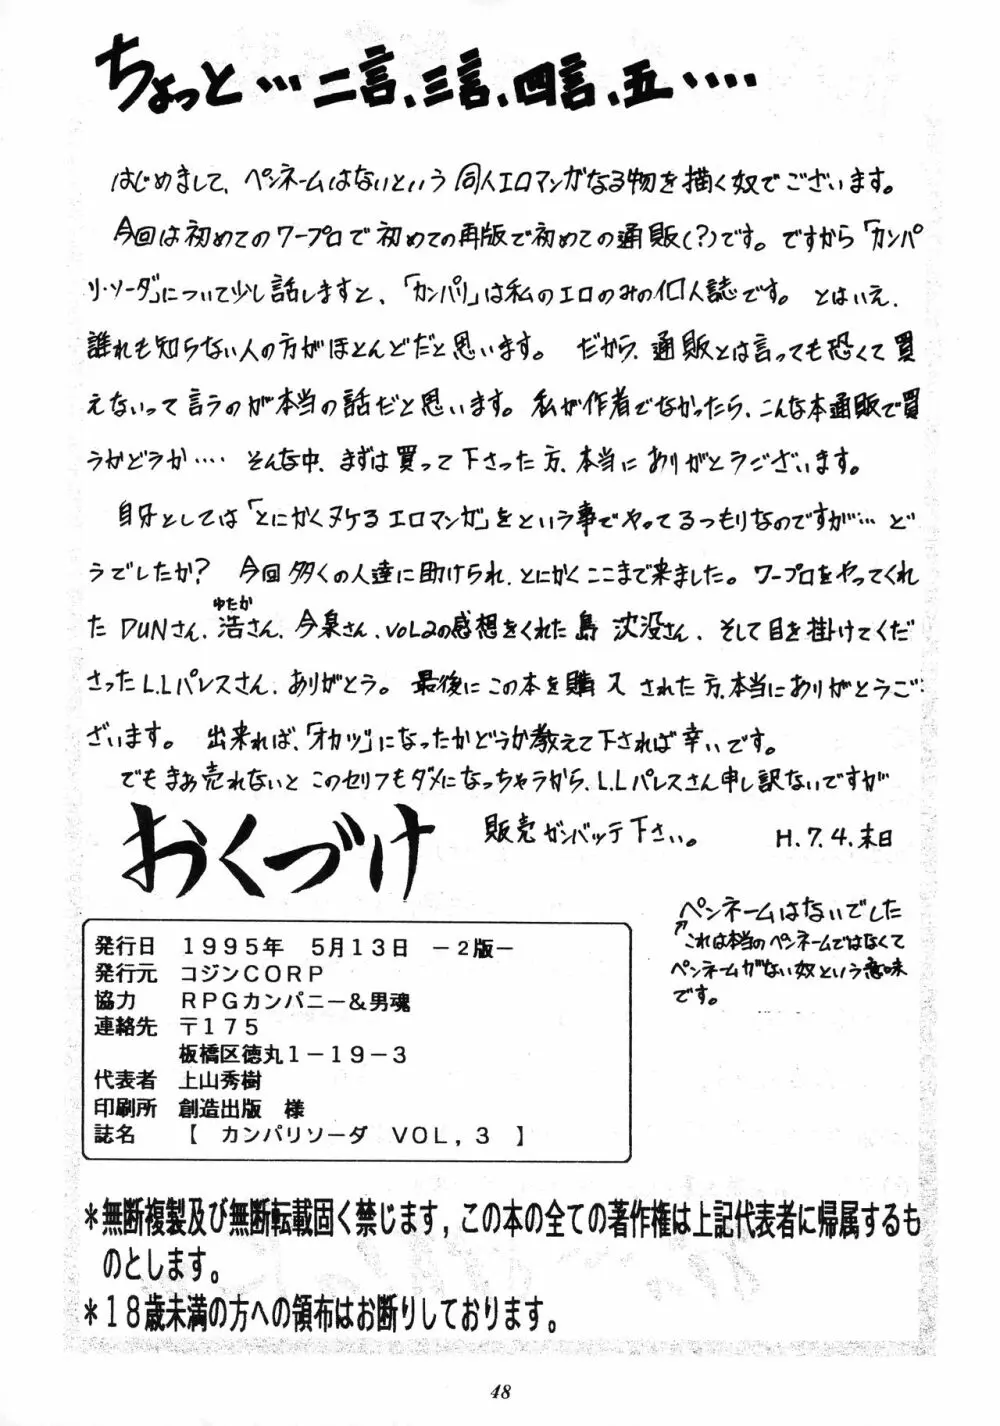 ちょっと…二言、三言、四言、五‥‥
はじめまして、ペンネームはないという同人エロマンガなる物を描く奴でございます。
今回は初めてのワープロで初めての再版で初めての通販(?)です。ですから「カンパ
リ・ソーダ」について少し話しますと、「カンパリ」は私のエロのみの個人誌です。とはいえ、
誰れも知らない人の方がほとんどだと思います。だから、通販とは言っても恐くて買
えないって言うのが本当の話だと思います。私が作者でなかったら、こんな本通販で買
うかどうか‥‥ そんな中、まずは買って下さった方、本当にありがとうございます。
自分としては「とにかくヌケるエロマンガ」をという事でやってるつもりなのですが…ど
うでしたか? 今回多くの人達に助けられ、とにかくここまで来ました。ワープロをやってくれ
ゆたか
たDUNさん、浩さん、今泉さん、VOL2の感想をくれた島沈没さん、そして目を掛けてくだ
さったL.Lパレスさん、ありがとう。最後にこの本を購入された方、本当にありがとうご
ざいます。出来れば、「オカヅ」になったかどうか教えて下されば幸いです。
でもまぁ売れないとこのセリフもダメになっちゃうから、L.Lパレスさん申し訳ないですが
販売ガンバッテ下さい。 H.7.4.末日
おくづけ
ペンネームはないでした
これは本当のペンネームではなくて
ペンネームがない奴という意味
です。
発行日 1995年 5月13日 −2版−
発行元 コジンCORP
協力 RPGカンパニー＆男魂
連絡先 〒175
板橋区徳丸1−19−3
代表者 上山秀樹
印刷所 創造出版 様
誌名 【 カンパリソーダ VOL,3 】
＊無断複製及び無断転載固く禁じます，この本の全ての著作権は上記代表者に帰属するも
のとします。
＊18歳未満の方への領布はお断りしております。
48